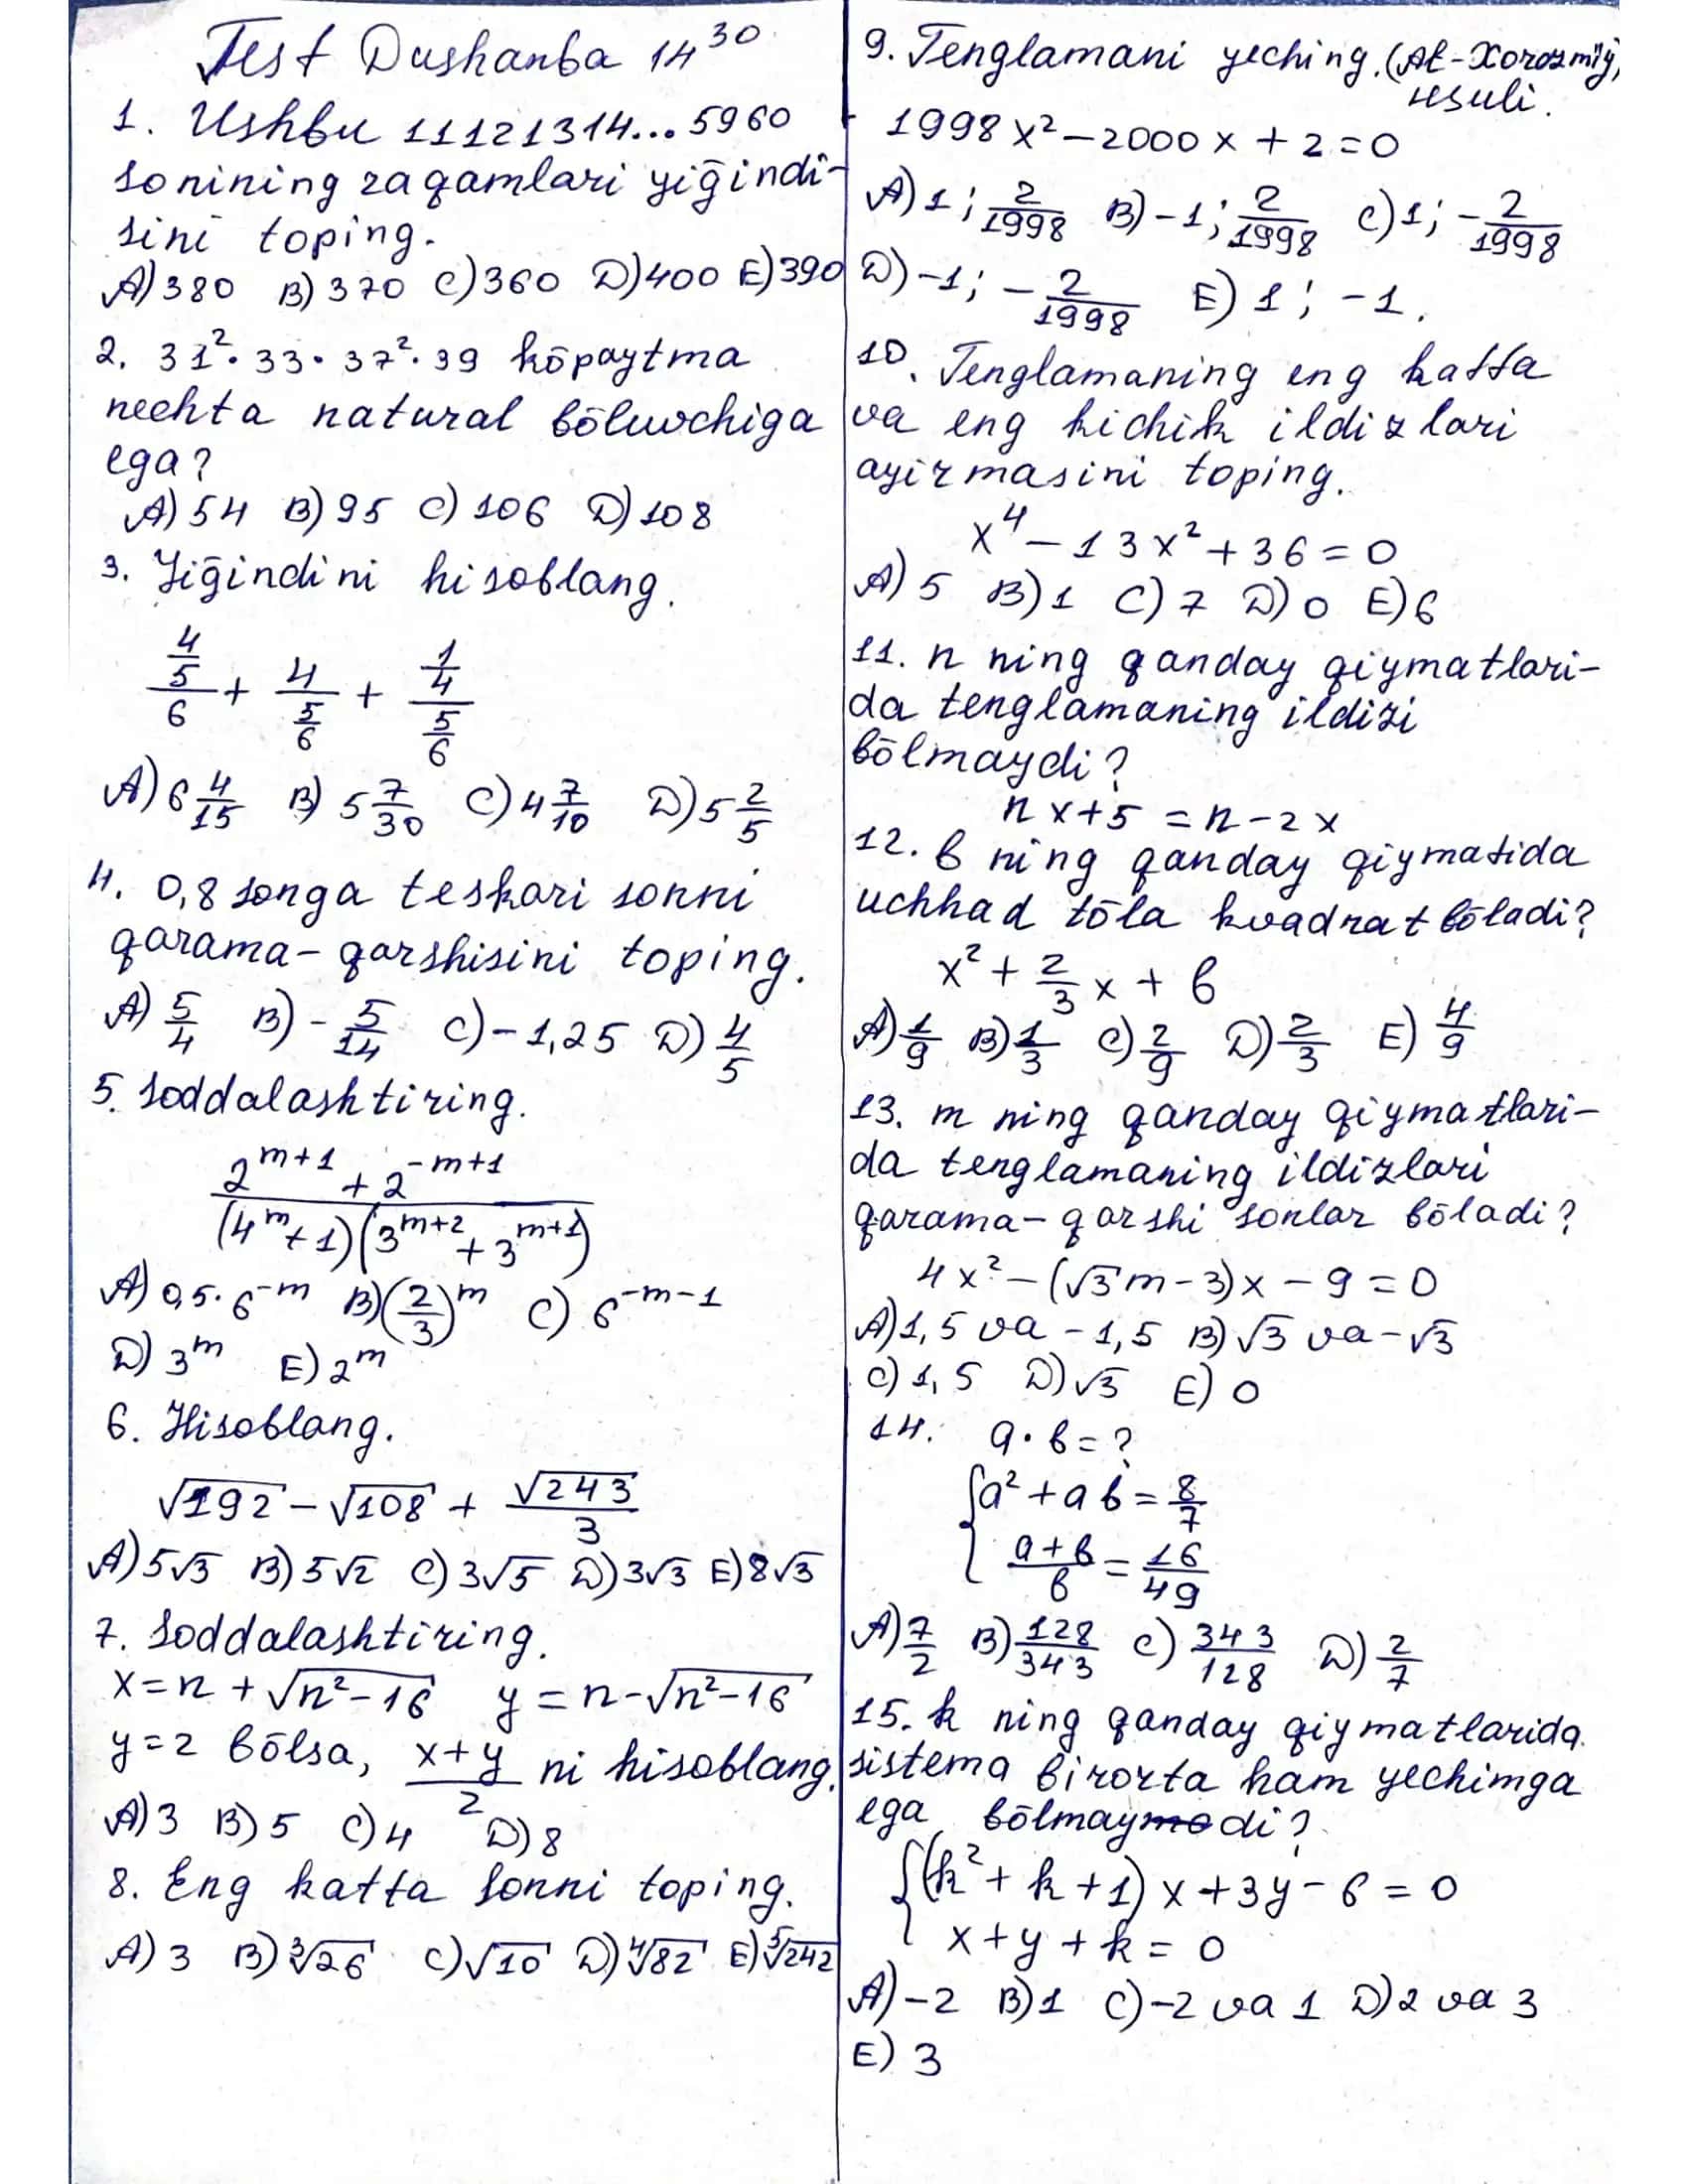 Test Dushanba 14³⁰
1. Ushbu 11121314...5960
sonining raqamlari yiḡindi-
sini toping.
A) 380 B) 370 C) 360 D) 400 E) 390
2. 31²·33·37²·39 kōpaytma
nechta natural bōluvchiga
ega?
A) 54 B) 95 C) 106 D) 108
3. Yiḡindini hisoblang.
(4/5)/6 + 4/(5/6) + (1/4)/(5/6)
A) 6 4/15 B) 5 7/30 C) 4 7/10 D) 5 2/5
4. 0,8 songa teskari sonni
qarama-qarshisini toping.
A) 5/4 B) -5/14 C) -1,25 D) 4/5
5. Soddalashtiring.
(2^(m+1) + 2^(-m+1))/((4^m+1)(3^(m+2)+3^(m+1)))
A) 0,5·6^(-m) B) (2/3)^m C) 6^(-m-1)
D) 3^m E) 2^m
6. Hisoblang.
√192 - √108 + √243/3
A) 5√3 B) 5√2 C) 3√5 D) 3√3 E) 8√3
7. Soddalashtiring.
x=n+√(n²-16) y=n-√(n²-16)
y=2 bōlsa, (x+y)/2 ni hisoblang.
A) 3 B) 5 C) 4 D) 8
8. Eng katta sonni toping.
A) 3 B) ∛26 C) √10 D) ∜82 E) ⁵√242
9. Tenglamani yeching. (Al-Xorazmiy,
usuli.
1998x²-2000x+2=0
A) 1; 2/1998 B) -1; 2/1998 C) 1; -2/1998
D) -1; -2/1998 E) 1; -1.
10. Tenglamaning eng katta
va eng kichik ildizlari
ayirmasini toping.
x⁴-13x²+36=0
A) 5 B) 1 C) 7 D) 0 E) 6
11. n ning qanday qiymatlari-
da tenglamaning ildizi
bōlmaydi?
nx+5=n-2x
12. b ning qanday qiymatida
uchhad tōla kvadrat bōladi?
x²+2/3x+b
A) 1/9 B) 1/3 C) 2/9 D) 2/3 E) 4/9
13. m ning qanday qiymatlari-
da tenglamaning ildizlari
qarama-qarshi sonlar bōladi?
4x²-(√3m-3)x-9=0
A) 1,5 va -1,5 B) √3 va -√3
C) 1,5 D) √3 E) 0
14. a·b=?
{a²+ab=8/7
(a+b)/b=16/49
A) 7/2 B) 128/343 C) 343/128 D) 2/7
15. k ning qanday qiymatlarida
sistema birorta ham yechimga
ega bōlmaydi?
{(k²+k+1)x+3y-6=0
x+y+k=0
A) -2 B) 1 C) -2 va 1 D) 2 va 3
E) 3